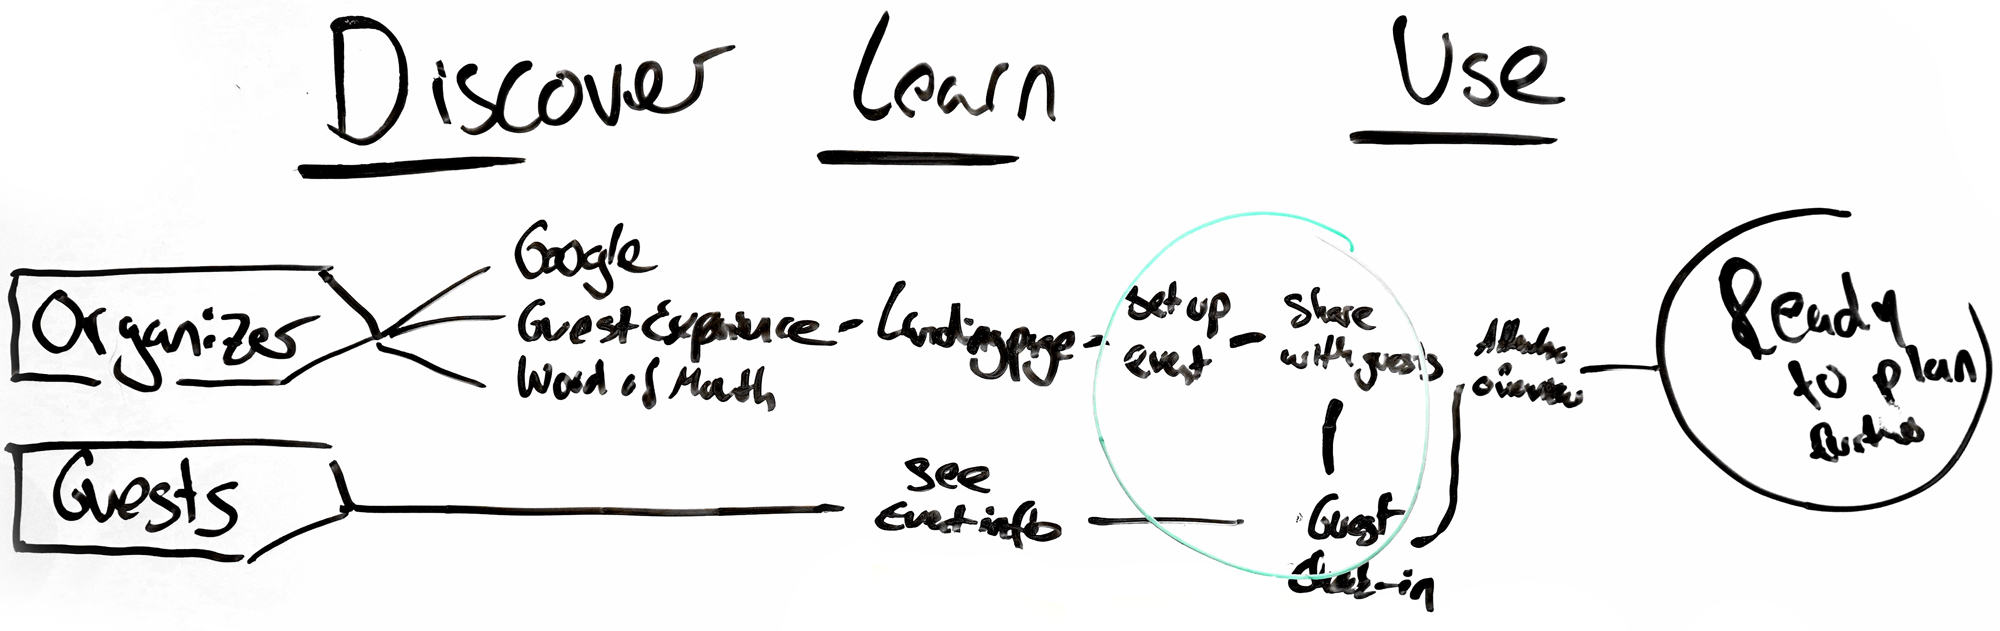 Discover Learn Use
Organizer
Google
Guest Experience - Landing page - Set up event - Share with guests
Word of Mouth
overview
Ready
to plan
further
Guests
See
Event info
Guest
Check-in